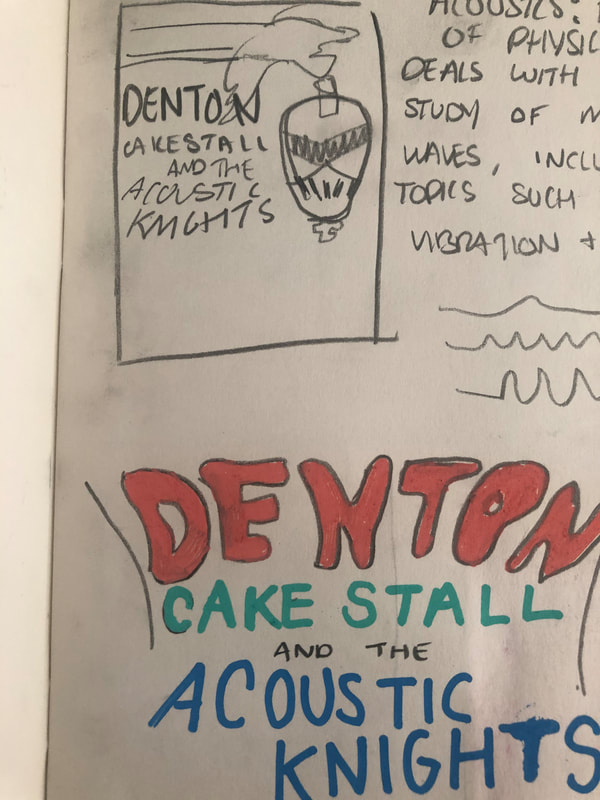 DENTON
CAKESTALL
AND THE
ACOUSTIC
KNIGHTS
ACOUSTICS:
OF PHYSIC
DEALS WITH
STUDY OF M
WAVES, INCLU
TOPICS SUCH
VIBRATION +
DENTON
CAKE STALL
AND THE
ACOUSTIC
KNIGHTS